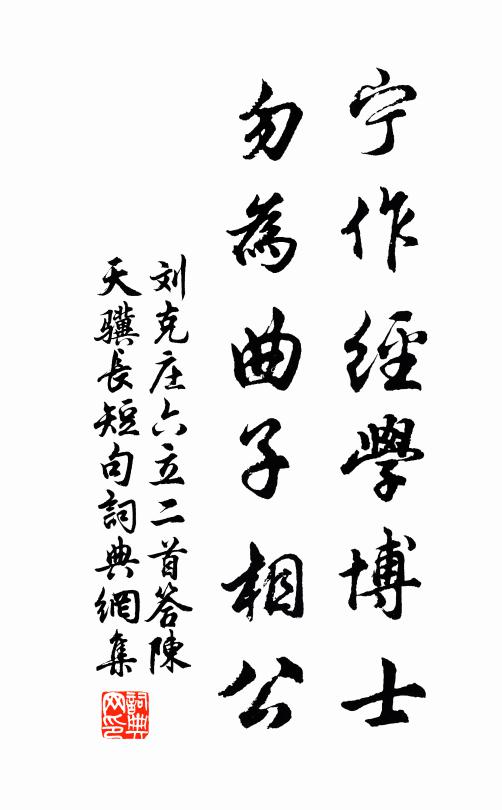 宁作經學博士
勿為曲子相公
刘克庄六立二首答陳
天驥長短句詞典網集
詞典
网印